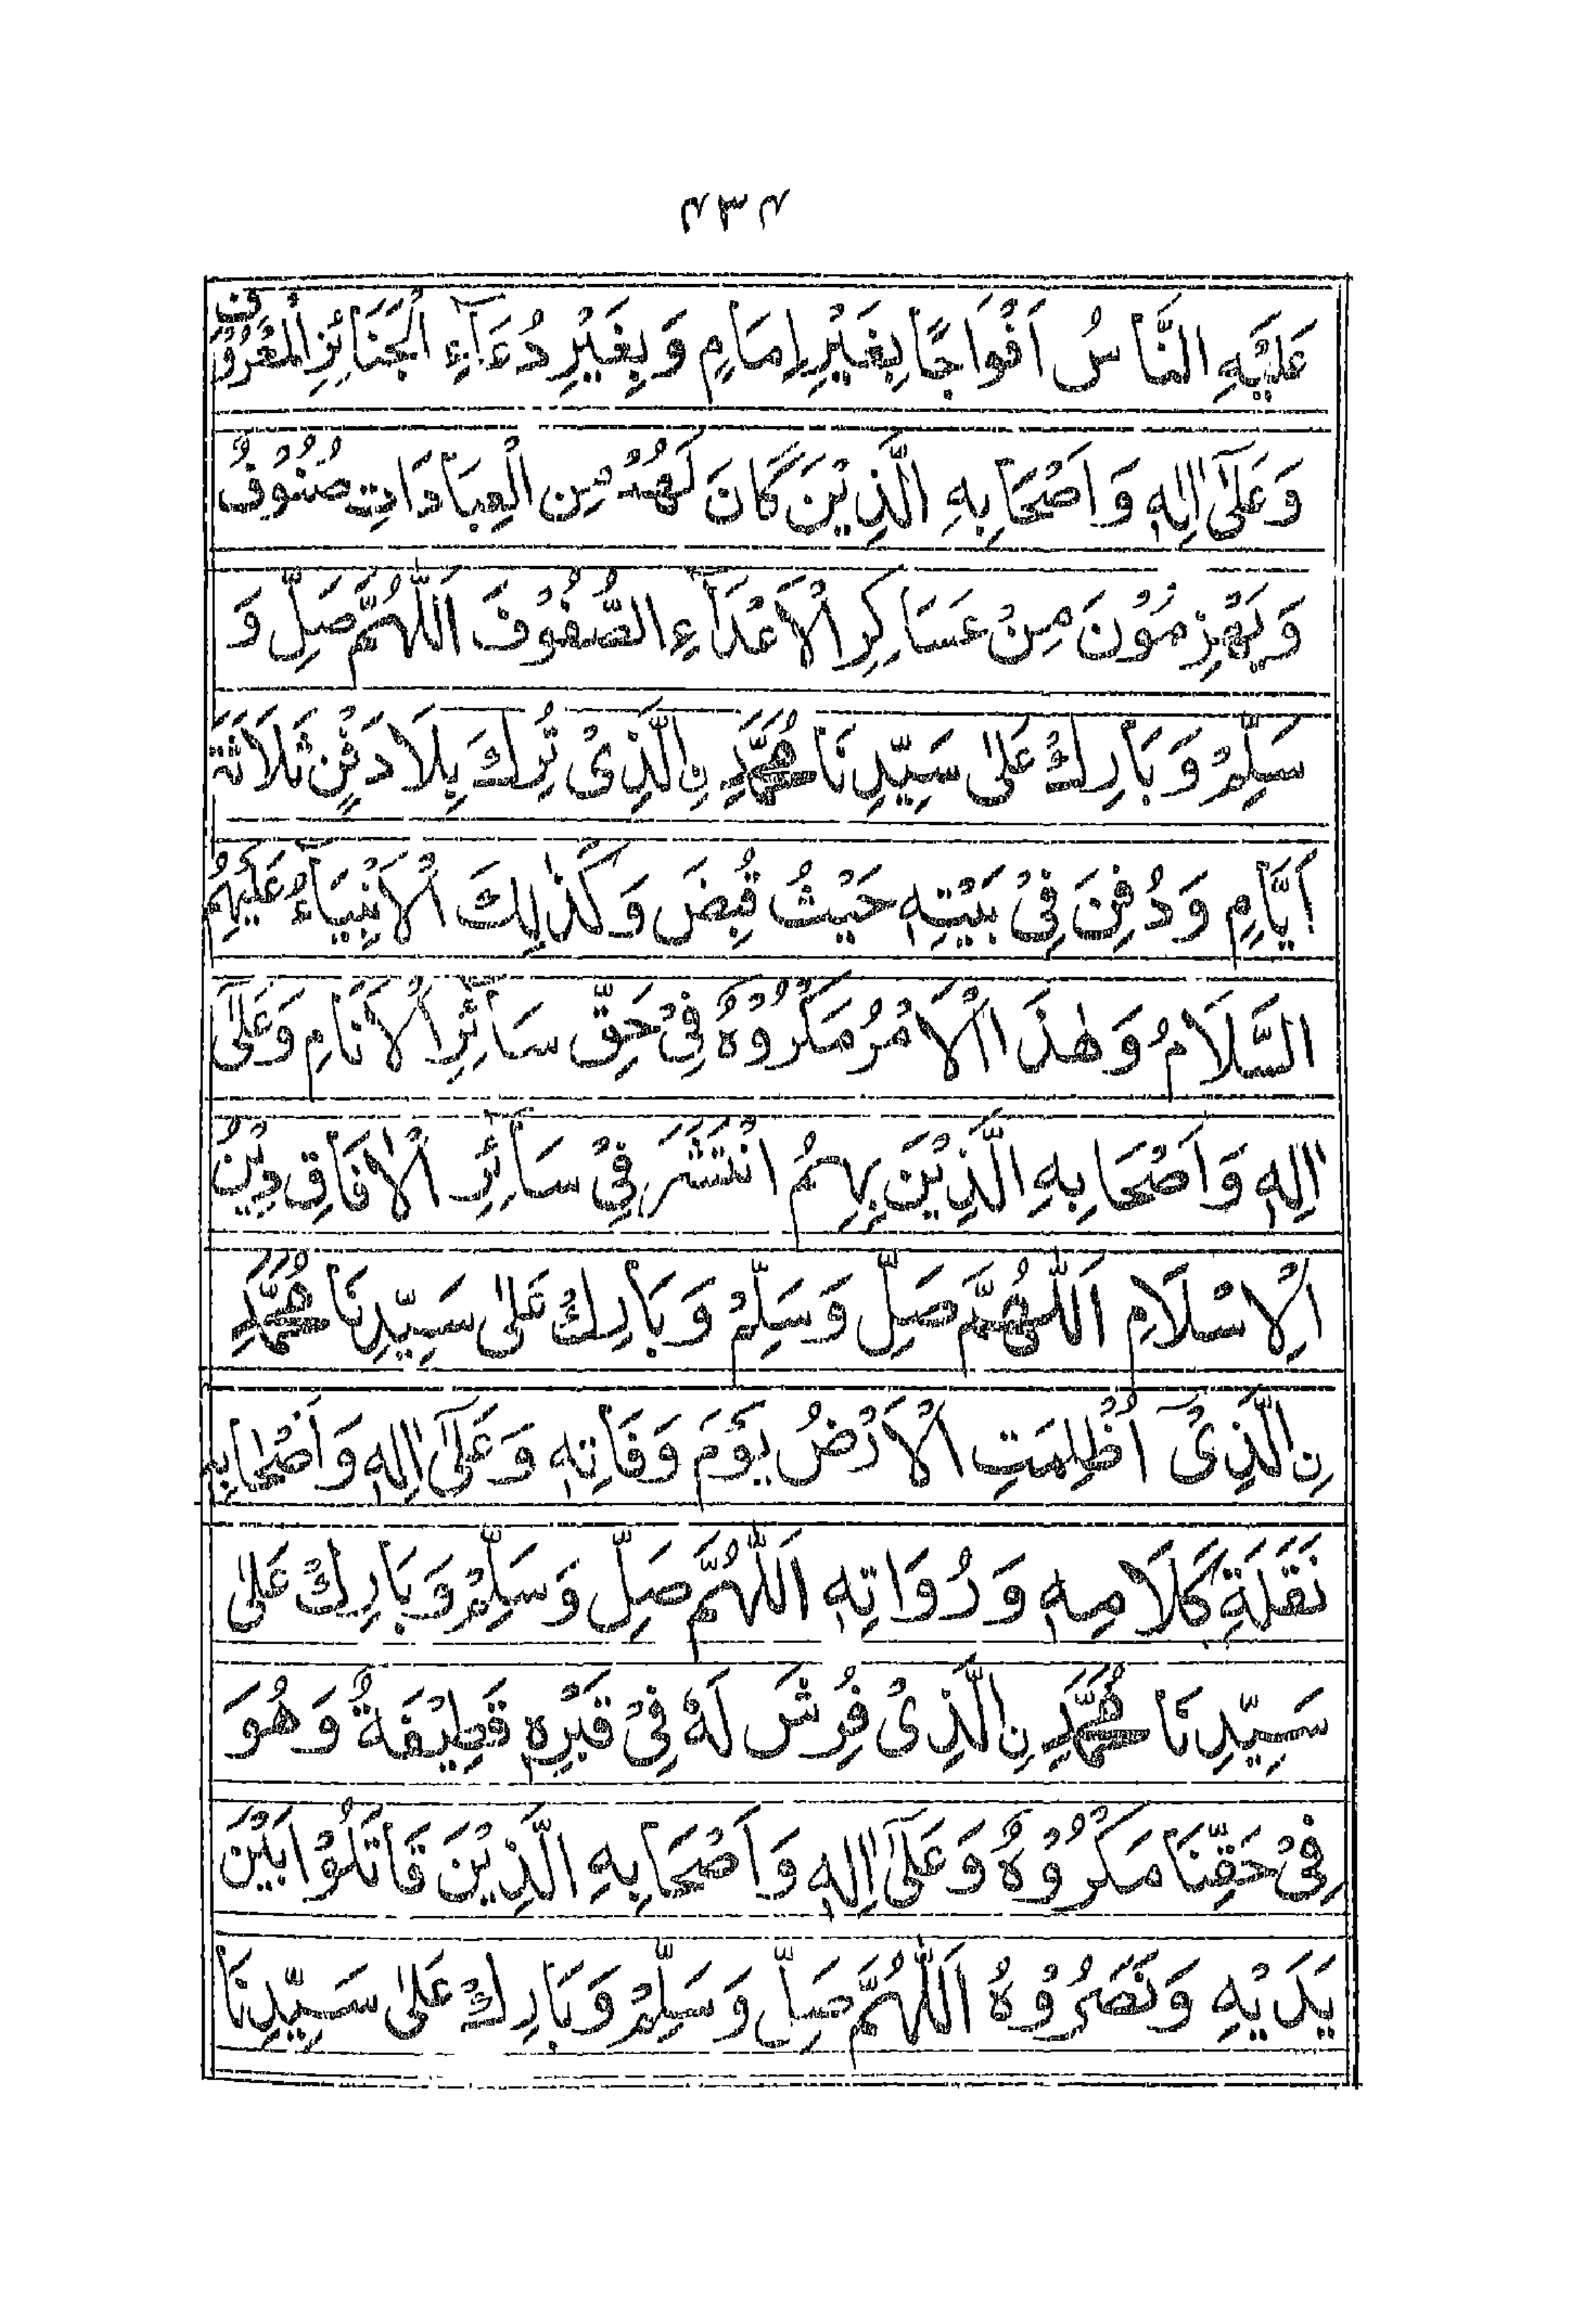 ۲۳۲
عَلَيْهِ النَّاسُ اَفْوَاجًا بِغَيْرِ اِمَامٍ وَ بِغَيْرِ دُعَآءِ الْجَنَائِزِ الْمَعْرُوْفِ
وَعَلٰٓى اٰلِهٖ وَ اَصْحَابِهِ الَّذِيْنَ كَانَ لَهُمْ مِن الْعِبَادَاتِ صُنُوْفٌ
وَ يَهْزِمُوْنَ مِنْ عَسَاكِرِ الْاَعْدَآءِ الصُّفُوْفَ اَللّٰهُمَّ صَلِّ وَ
سَلِّمْ وَ بَارِكْ عَلٰى سَيِّدِنَا مُحَمَّدِ نِ الَّذِىْ تُرِكَ بِلَا دَفْنٍ ثَلَاثَةَ
اَيَّامٍ وَ دُفِنَ فِىْ بَيْتِهٖ حَيْثُ قُبِضَ وَ كَذٰلِكَ الْاَنْبِيَآءُ عَلَيْهِمُ
السَّلَامُ وَ هٰذَا الْاَمْرُ مَكْرُوْهٌ فِىْ حَقِّ سَآئِرِ الْاَنَامِ وَعَلٰٓى
اٰلِهٖ وَ اَصْحَابِهِ الَّذِيْنَ بِهِمُ انْتَشَرَ فِىْ سَآئِرِ الْاٰفَاقِ دِيْنُ
الْاِسْلَامِ اَللّٰهُمَّ صَلِّ وَ سَلِّمْ وَ بَارِكْ عَلٰى سَيِّدِنَا مُحَمَّدِ
نِ الَّذِىْٓ اُظْلِمَتِ الْاَرْضُ يَوْمَ وَفَاتِهٖ وَ عَلٰٓى اٰلِهٖ وَ اَصْحَابِهٖ
نَقَلَةِ كَلَامِهٖ وَ رُوَاتِهٖ اَللّٰهُمَّ صَلِّ وَ سَلِّمْ وَ بَارِكْ عَلٰى
سَيِّدِنَا مُحَمَّدِ نِ الَّذِىْ فُرِشَ لَهٗ فِىْ قَبْرِهٖ قَطِيْفَةٌ وَ هُوَ
فِىْ حَقِّنَا مَكْرُوْهٌ وَ عَلٰٓى اٰلِهٖ وَ اَصْحَابِهِ الَّذِيْنَ قَاتَلُوْا بَيْنَ
يَدَيْهِ وَ نَصَرُوْهُ اَللّٰهُمَّ صَلِّ وَ سَلِّمْ وَ بَارِكْ عَلٰى سَيِّدِنَا